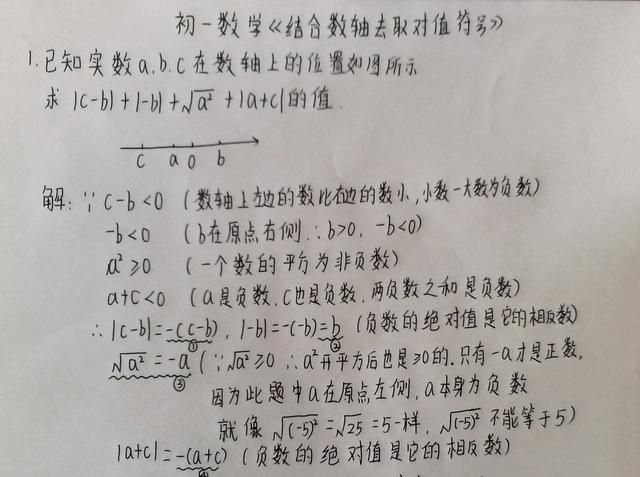 初一数学《结合数轴去取对值符号》
1.已知实数a.b.c在数轴上的位置如图所示
求 |c-b|+|-b|+√a² +|a+c|的值.
c a 0 b
解: ∵ c-b<0 (数轴上左边的数比右边的数小,小数-大数为负数)
-b<0 (b在原点右侧∴b>0, -b<0)
a²≥0 (一个数的平方为非负数)
a+c<0 (a是负数,c也是负数,两负数之和是负数)
∴ |c-b|=-(c-b), |-b|=-(-b)=b (负数的绝对值是它的相反数)
① ②
√a² =-a (∵√a²≥0 ∴a²开平方后也是≥0的.只有-a才是正数,
③
因为此题中a在原点左侧,a本身为负数
就像 √(-5)²=√25=5一样, √(-5)² 不能等于5)
|a+c|=-(a+c) (负数的绝对值是它的相反数)